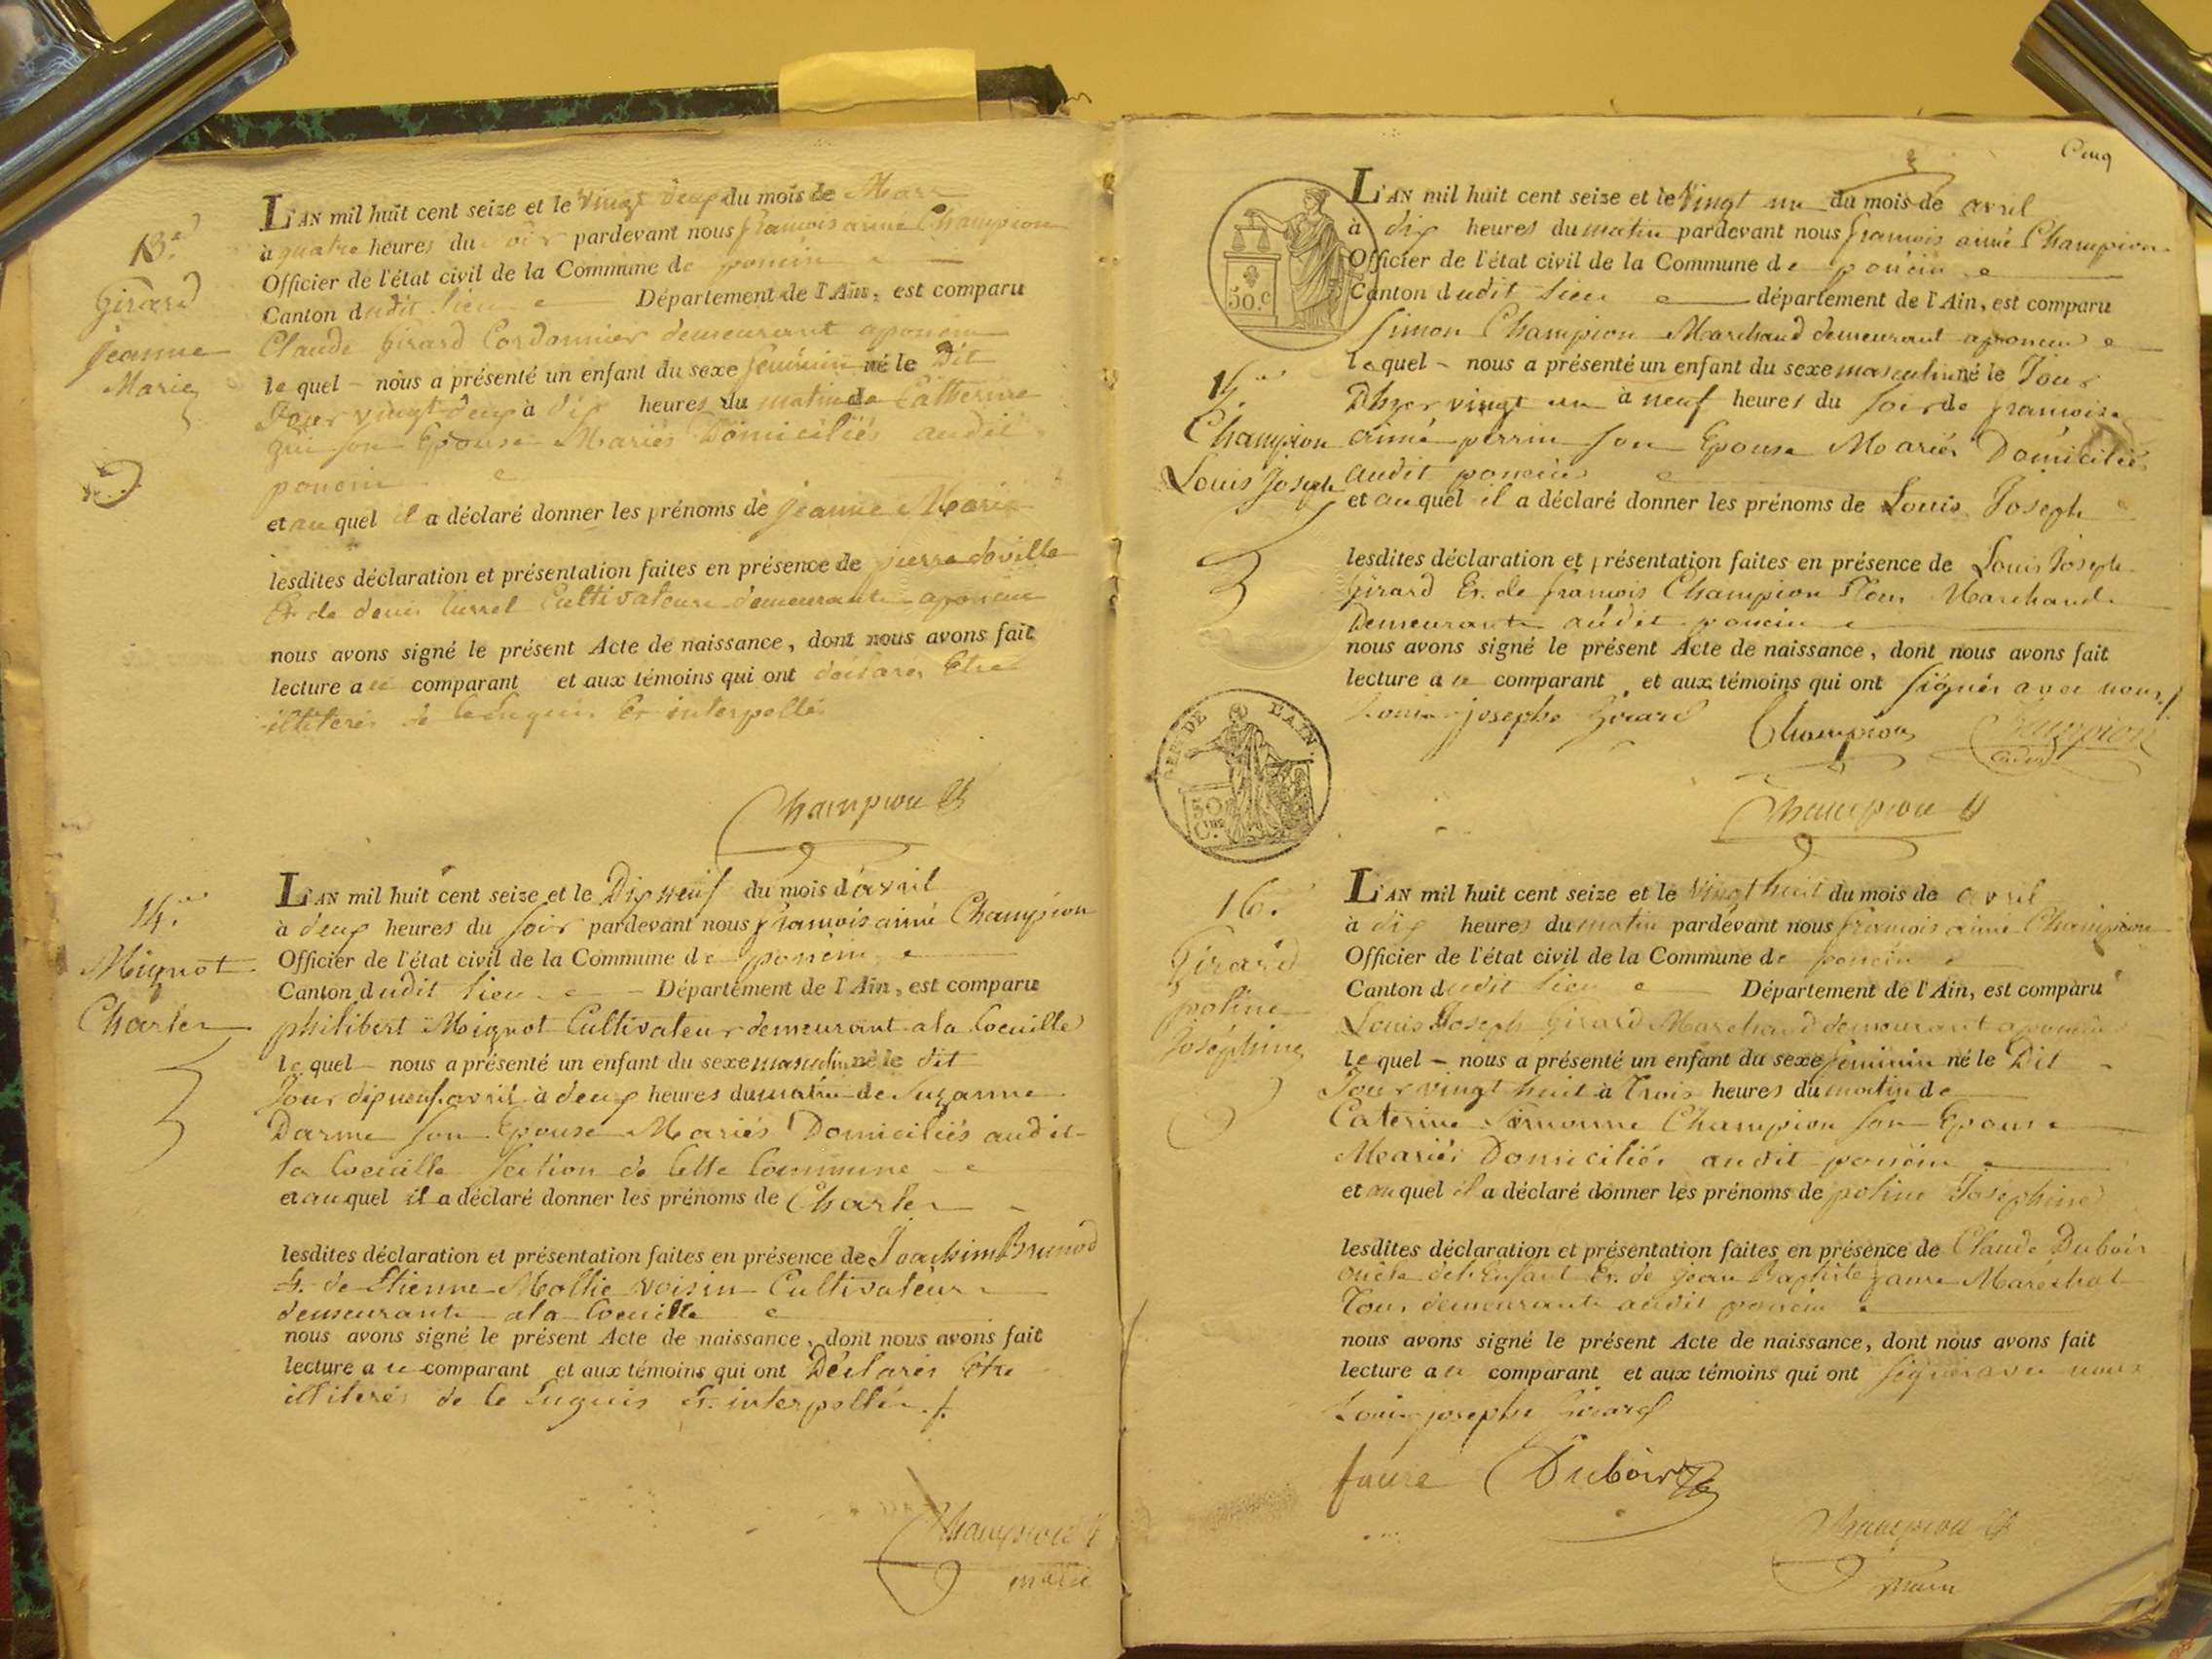 13.e
Girard
Jeanne
Marie
L'AN mil huit cent seize et le vingt deux du mois de Mars
à quatre heures du soir pardevant nous francois aimé Champion
Officier de l'état civil de la Commune de poncin
Canton dudit lieu Département de l'Ain, est comparu
Claude Girard Cordonnier demeurant aponcin
le quel nous a présenté un enfant du sexe féminin né le Dit
Jour vingt deux à dix heures du matin de Catherine
son Epouse Mariés Domiciliés audit
poncin
et au quel il a déclaré donner les prénoms de Jeanne Marie
lesdites déclaration et présentation faites en présence de pierre
Et de denis Cultivateurs demeurants aponcin
nous avons signé le présent Acte de naissance, dont nous avons fait
lecture a ce comparant et aux témoins qui ont déclarés Etre
illiterés de ce Enquis Et interpellés
Champion
14.e
Mignot
Charles
L'AN mil huit cent seize et le Dix neuf du mois d'avril
à deux heures du soir pardevant nous francois aimé Champion
Officier de l'état civil de la Commune de poncin
Canton dudit lieu Département de l'Ain, est comparu
philibert Mignot Cultivateur demeurant ala Coeuille
le quel nous a présenté un enfant du sexe masculin né le dit
Jour dix neuf avril à deux heures du matin de Suzanne
Darme son Epouse Mariés Domiciliés audit
la Coeuille Section de Cette Commune
et au quel il a déclaré donner les prénoms de Charles
lesdites déclaration et présentation faites en présence de Joachim Brunod
Et de Etienne Mollie voisin Cultivateurs
demeurants ala Coeuille
nous avons signé le présent Acte de naissance, dont nous avons fait
lecture a ce comparant et aux témoins qui ont Déclarés Etre
illiterés de ce Enquis Et interpellés
Champion
maire
Cinq
50.c
15.e
Champion
Louis Joseph
L'AN mil huit cent seize et le Vingt un du mois de avril
à dix heures du matin pardevant nous francois aimé Champion
Officier de l'état civil de la Commune de poncin
Canton dudit lieu département de l'Ain, est comparu
Simon Champion Marchand demeurant aponcin
le quel nous a présenté un enfant du sexe masculin né le Jour
Dhyer vingt un à neuf heures du soir de francoise
aimé perrin son Epouse Mariés Domiciliés
audit poncin
et au quel il a déclaré donner les prénoms de Louis Joseph
lesdites déclaration et présentation faites en présence de Louis Joseph
Girard Et de francois Champion Tous Marchands
Demeurants audit poncin
nous avons signé le présent Acte de naissance, dont nous avons fait
lecture a ce comparant et aux témoins qui ont signés avec nous
Louis josephe Girard Champion Champion
cadet
Champion
DE L'AIN.
50
C.mes
16.
Girard
poline
Joséphine
L'AN mil huit cent seize et le Vingt huit du mois de avril
à dix heures du matin pardevant nous francois aimé Champion
Officier de l'état civil de la Commune de poncin
Canton dudit lieu Département de l'Ain, est comparu
Louis Joseph Girard Marchand demeurant aponcin
le quel nous a présenté un enfant du sexe féminin né le Dit
Jour vingt huit à Trois heures du matin de
Caterine Simonne Champion son Epouse
Mariés Domiciliés audit poncin
et au quel il a déclaré donner les prénoms de poline Joséphine
lesdites déclaration et présentation faites en présence de Claude Dubois
oncle de l'Enfant Et de Jean Baptiste faure Maréchal
Tous demeurants audit poncin
nous avons signé le présent Acte de naissance, dont nous avons fait
lecture a ce comparant et aux témoins qui ont signés avec nous
Louis josephe Girard
faure Dubois
Champion
maire